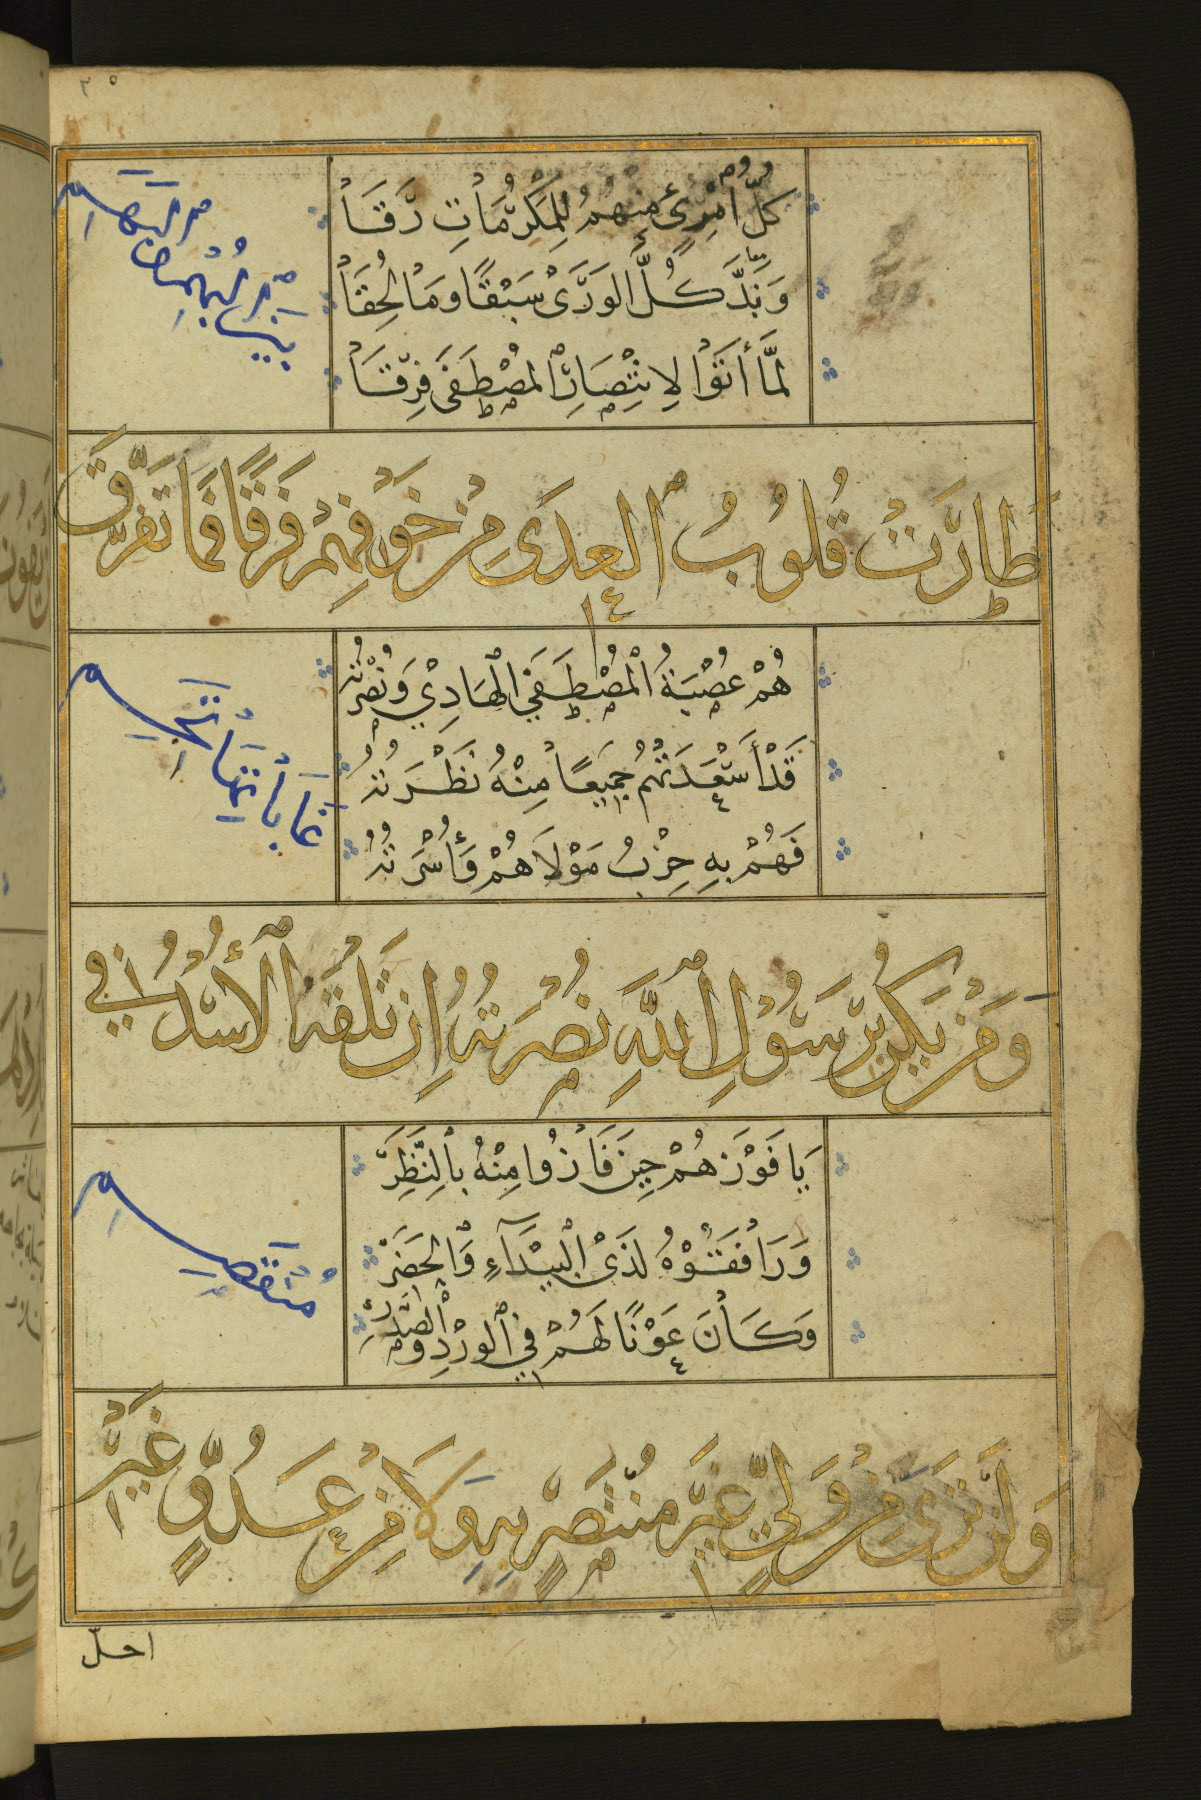 ٣٥
كُلُّ امْرِئٍ مِنْهُمُ لِلْمَكْرُمَاتِ رَقَا
وَبَذَّ كُلَّ الْوَرَى سَبْقًا وَمَا لُحِقَا
لَمَّا أَتَوْا لِانْتِصَارِ الْمُصْطَفَى فِرَقَا
طَارَتْ قُلُوبُ الْعِدَى مِنْ خَوْفِهِمْ فَرَقًا فَمَا تُفَرِّقُ
بَيْنَ الْبَهْمِ وَالْبُهَمِ
هُمْ عُصْبَةُ الْمُصْطَفَى الْهَادِي وَنُصْرَتُهُ
قَدْ أَسْعَدَتْهُمْ جَمِيعًا مِنْهُ نَظْرَتُهُ
فَهُمْ بِهِ حِزْبُ مَوْلَاهُمْ وَأُسْرَتُهُ
وَمَنْ يَكُنْ بِرَسُولِ اللَّهِ نُصْرَتُهُ إِنْ تَلْقَهُ الْأُسْدُ فِي
آجَامِهَا تَجِمِ
يَا فَوْزَهُمْ حِينَ فَازُوا مِنْهُ بِالنَّظَرِ
وَرَافَقُوهُ لَدَى الْبَيْدَاءِ وَالْحَضَرِ
وَكَانَ عَوْنًا لَهُمْ فِي الْوِرْدِ وَالصَّدَرِ
وَلَنْ تَرَى مِنْ وَلِيٍّ غَيْرَ مُنْتَصِرٍ بِهِ وَلَا مِنْ عَدُوٍّ غَيْرَ
مُنْقَصِمِ
احلّ